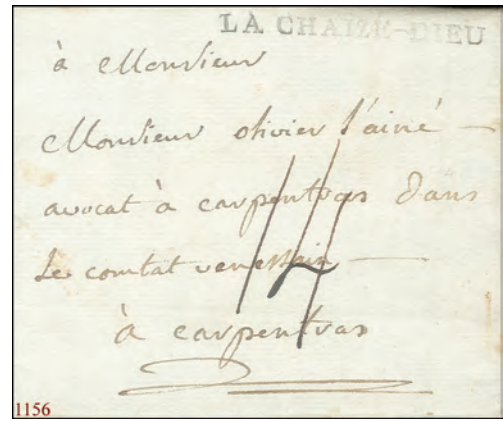 LA CHAIZE-DIEU
à Monsieur
Monsieur olivier l'ainé
avocat à carpentras dans
le comtat venessain
à carpentras
1156